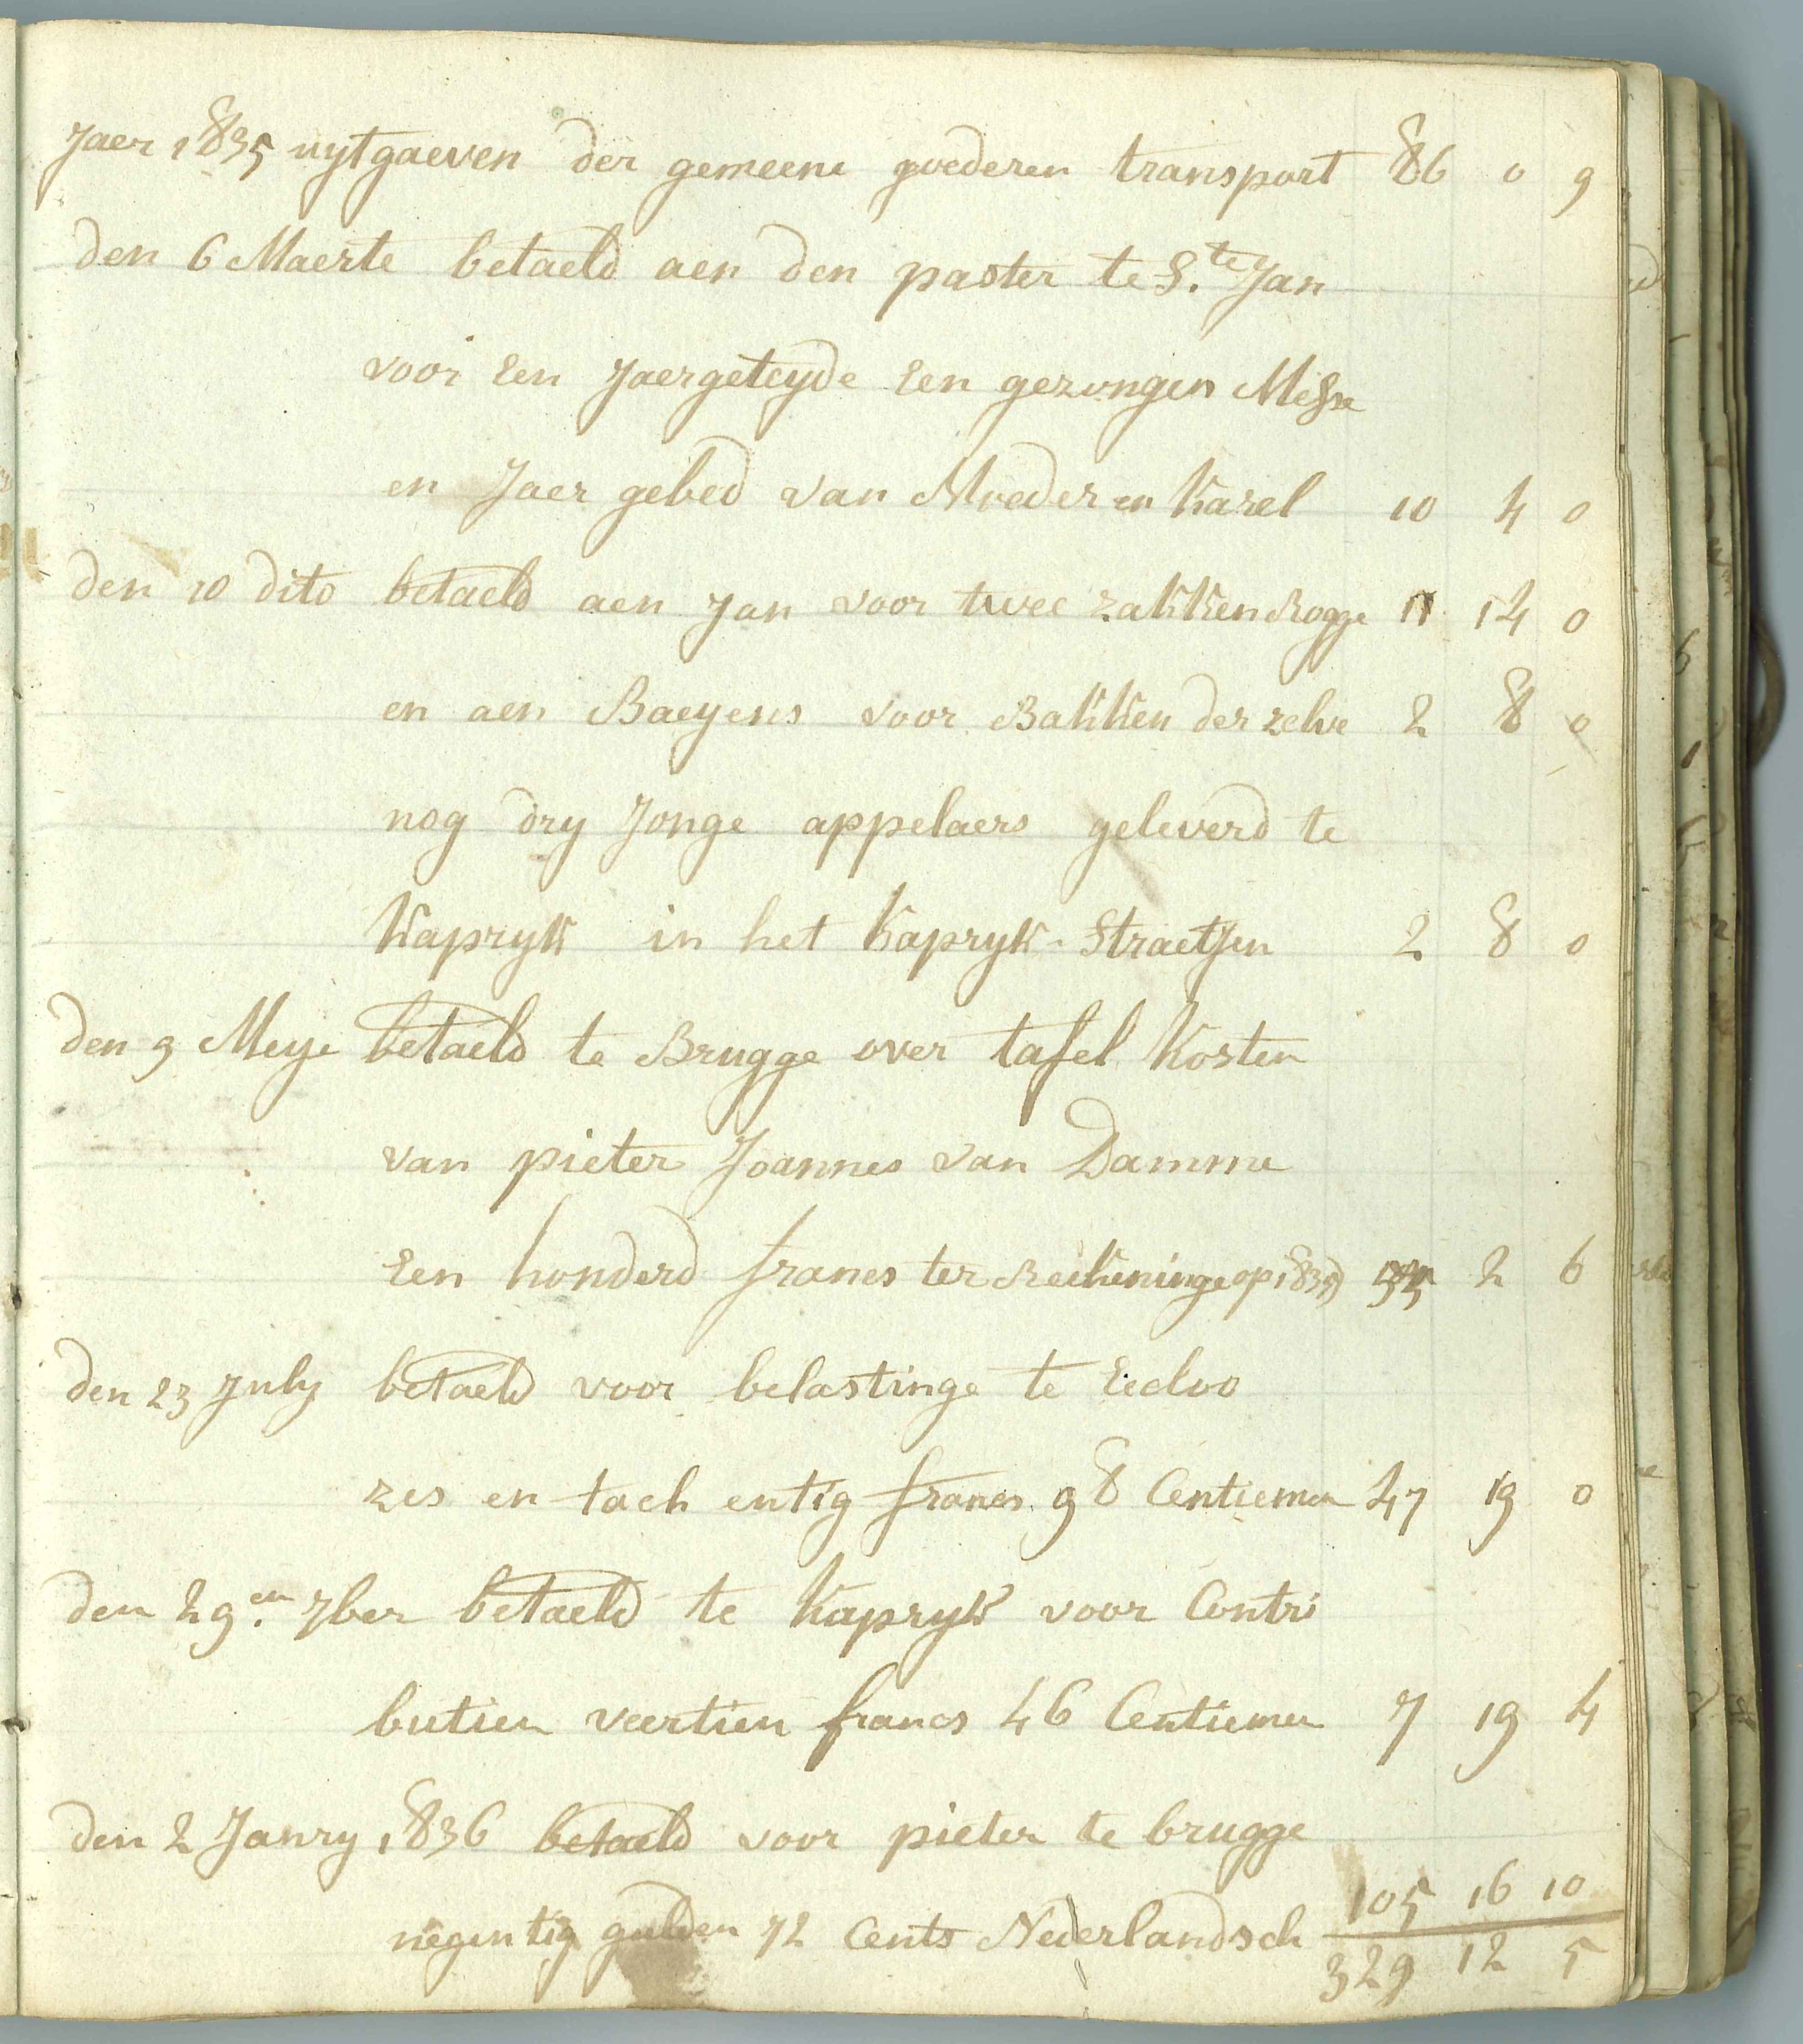 Jaer 1835 uytgaeven der gemeene goederen transport 86 0 9
den 6 Maerte betaeld aen den paster te S.te Jan
voor Een Jaergeteyde Een gezongen Misse
en Jaer gebed van Moeder en Karel 10 4 0
den 10 dito betaeld aen Jan voor twee zakken Rogge 11 14 0
en aen Baeyens voor Bakken der zelve 2 8 0
nog dry Jonge appelaers geleverd te
Kapryk in het Kapryk-Straetjen 2 8 0
den 9 Meye betaeld te Brugge over tafel Kosten
van pieter Joannes van Damme
Een honderd francs ter Reekeninge op 1835 55 2 6
den 23 July betaeld voor belastinge te Eecloo
zes en tach entig francs 98 Centiemen 47 19 0
den 29en. 7ber betaeld te Kapryk voor Contri
butien veertien francs 46 Centiemen 7 19 4
den 2 Janry 1836 betaeld voor pieter te brugge
negentig gulden 72 Cents Nederlandsch 105 16 10
329 12 5